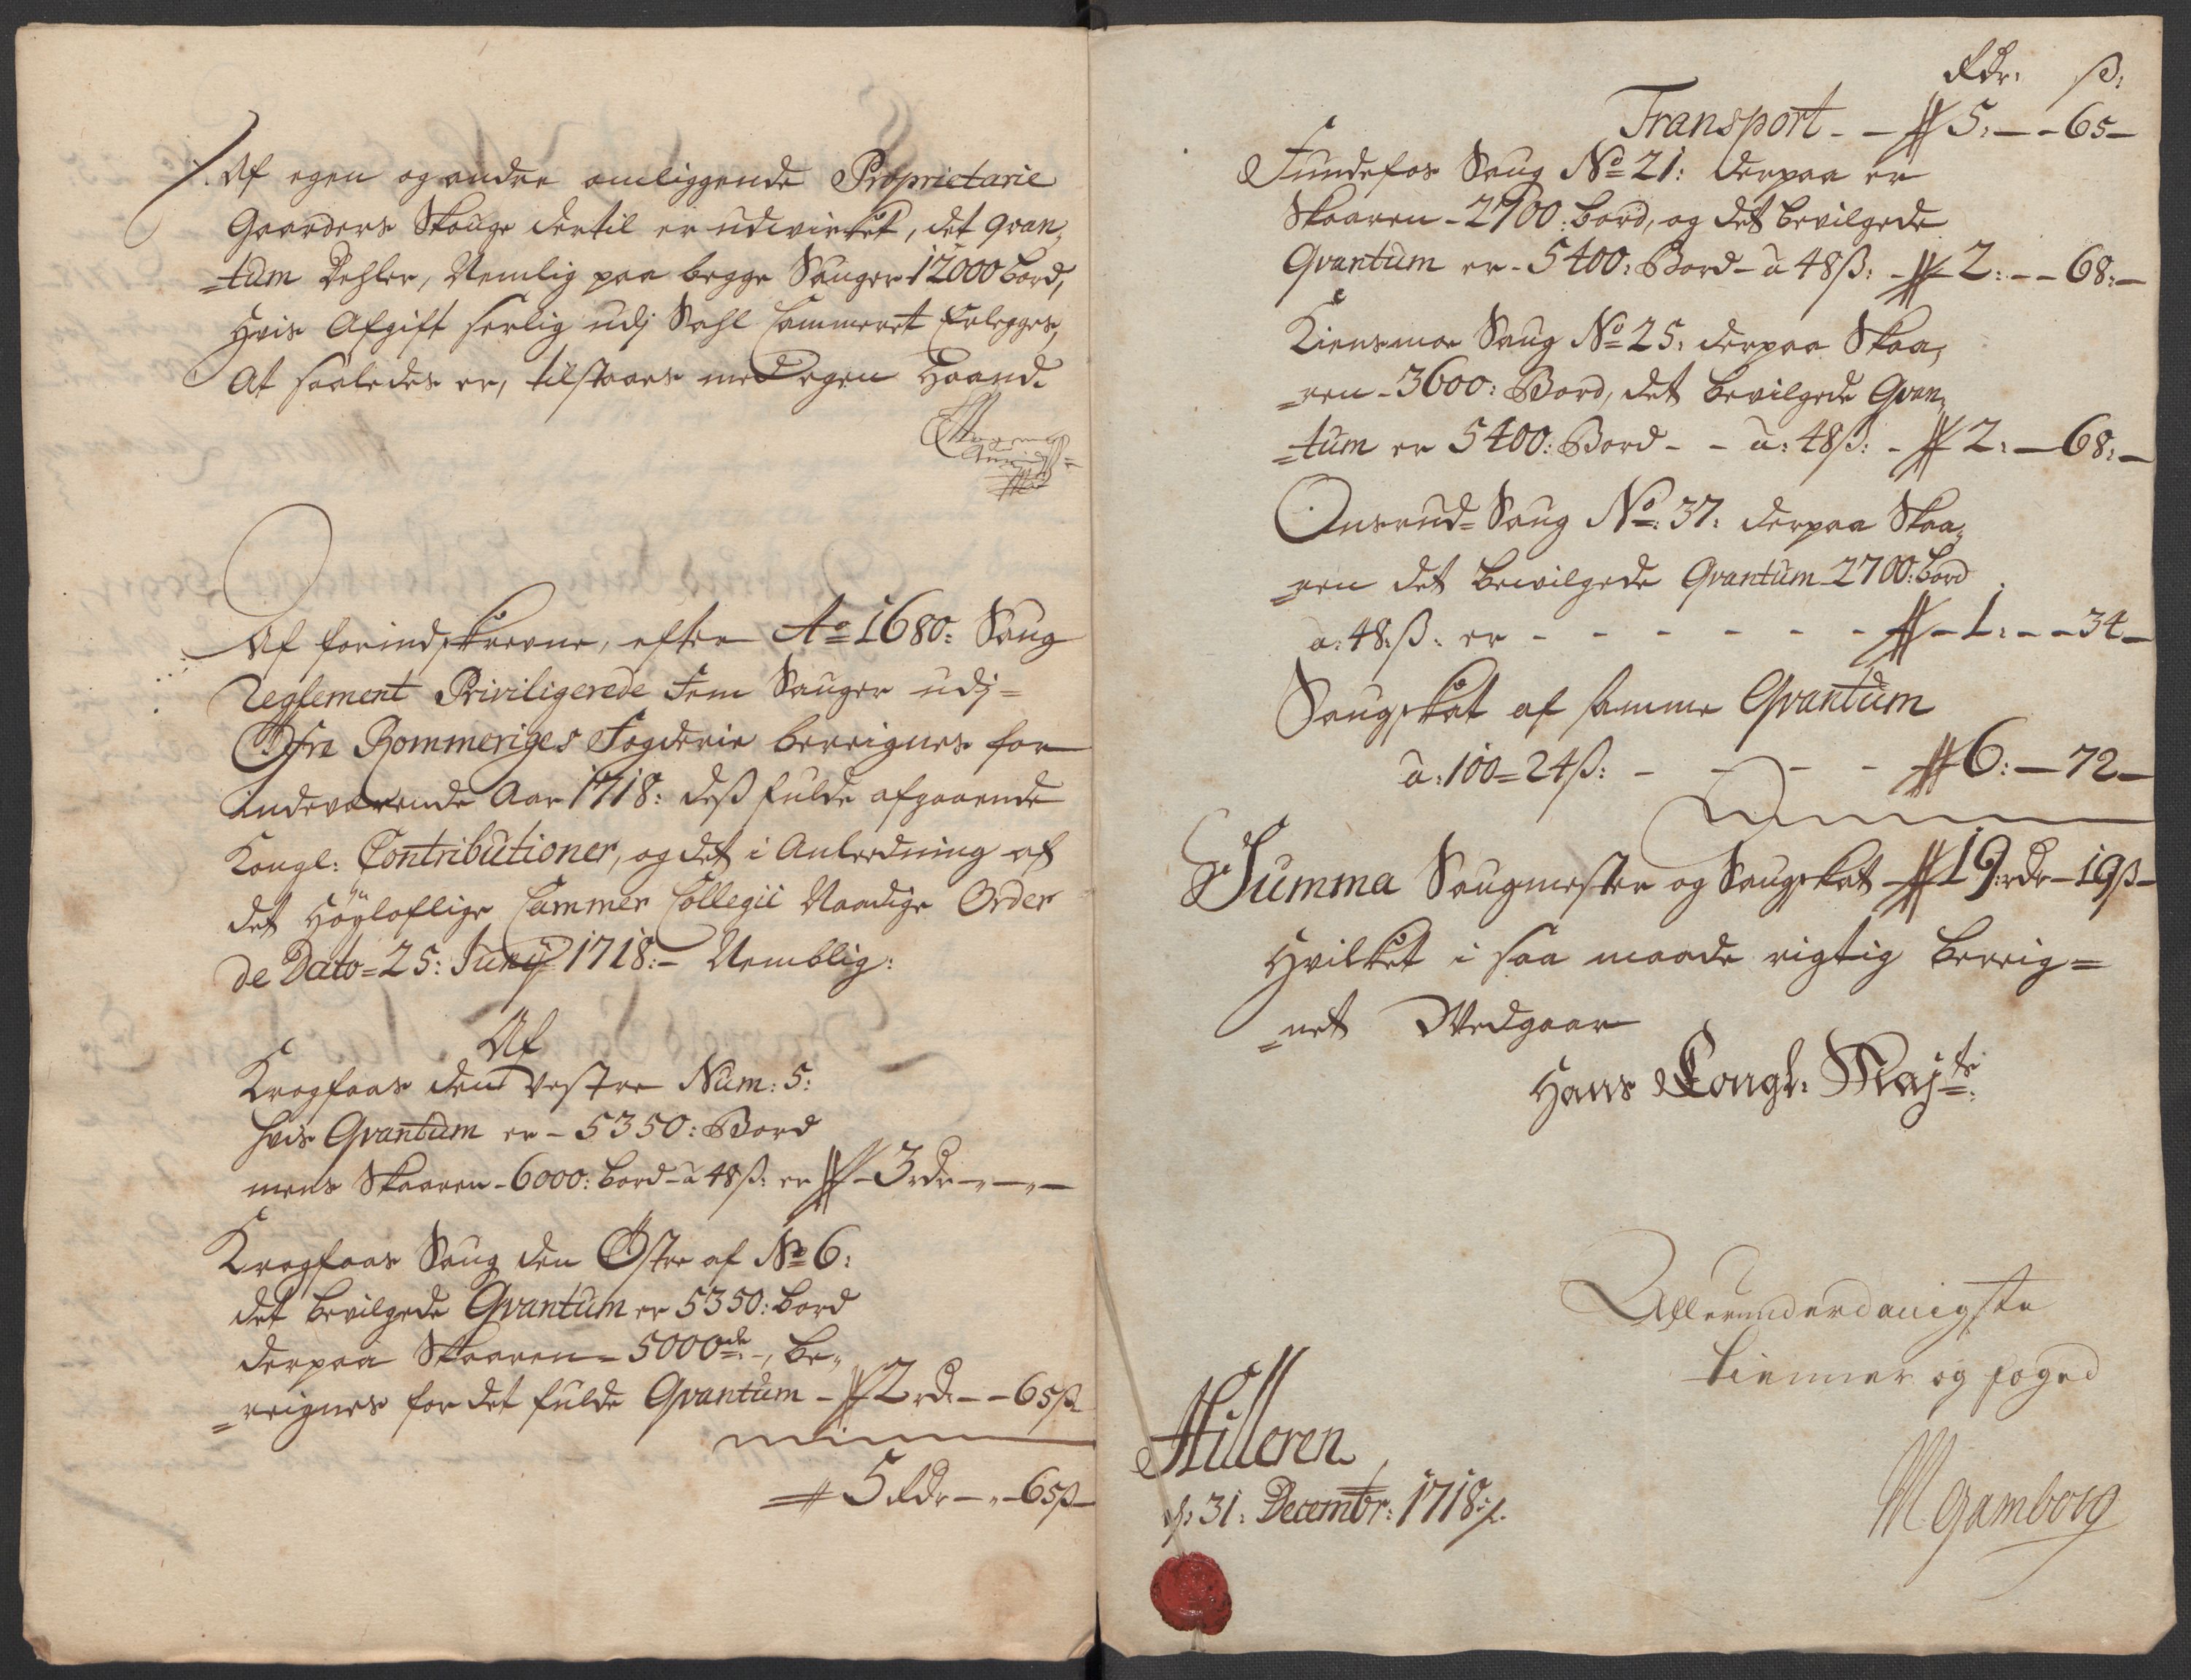 Af egen og andre omliggende Proprietarie
Gaarders Skouge dertil er udvirket, det qvan¬
=tum Dehler, Nemlig paa begge Sauger 12000 bord,
Hvis Afgift serlig udj Sahl Cammeret Erlegges,
At saaledes er, tilstaaes med egen Haand.
Af forindskrevne, efter Ao 1680: Saug
reglement Priviligerede Fem Sauger udj=
Öfre Rommeriges Fogderie bereignes for
indeværende Aar 1718: dess fulde afgaaende
Kongl: Contributioner, og det i Anleedning af
det Höyloflige Cammer Collegii Naadige Order
de Dato=25: Junij 1718:- Nemblig:
Af
Kragfaas den Vestre Num: 5:
hvis Qvantum er - 5350: Bord
mens Skaaren - 6000: bord - a 48 ß: er # - 3 rdr - „ -
Kragfaas Saug den Östre af No 6:
det bevilgede Qvantum er 5350: bord
derpaa Skaaren = 5000de -, be¬
=reignes for det fulde Qvantum - # 2 rdr - - 65 ß
# 5 Rdr - „ - 65 ß -
Rdr: ß:
Transport - - # 5: - - 65 -
Fundefos Saug No 21: derpaa er
Skaaren - 2700: bord, og det bevilgede
Qvantum er - 5400: Bord - a 48 ß: - # 2: - - 68: -
Kiensmoe Saug No 25: derpaa Skaa¬
=ren - 3600: Bord, det bevilgede Qvan¬
=tum er 5400: Bord - - a: 48 ß: - # 2: - 68: -
Onsrud=Saug No: 37: derpaa Skaa¬
=ren det bevilgede Qvantum 2700: bord
a: 48: ß: er - - - - - - # - 1: - - 34 -
Saugskat af samme Qvantum
a: 100 = 24 ß: - - - - # 6: - 72 -
Summa Saugmester og Saugskat - # 19: rdr - 19 ß -
Hvilket i saa maade rigtig bereig=
=net Vedgaar
Hans Kongl: Majts:
Allerunderdanigste
tienner og foged
Hilleren
d: 31: Decembr: 1718:/.
M Gamborg